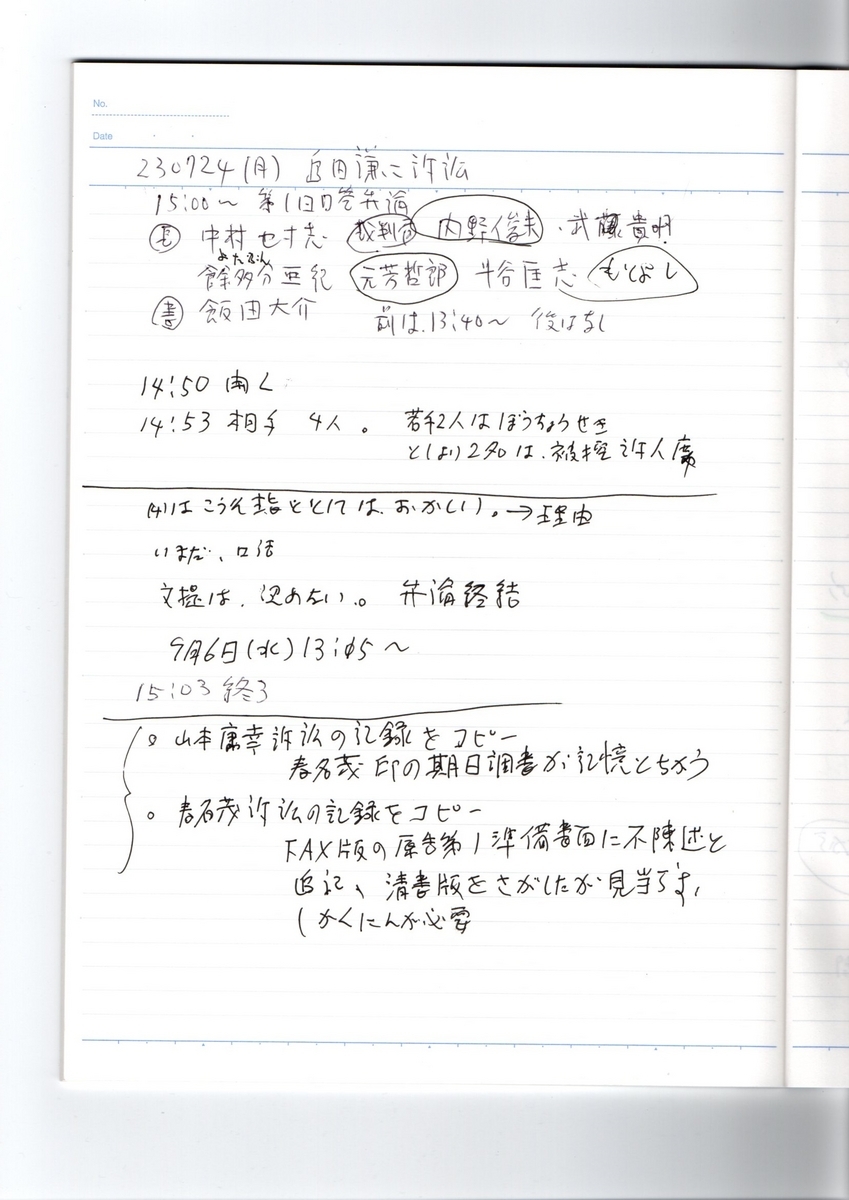 No.
Date
230724(月) 訴訟
15:00～ 第1回口答弁論
長 中村 志 裁判官 内野俊夫・武藤貴明
よたぶん
餘多分亜紀 元芳哲郎 斗谷匡志 もとよし
書 飯田大介 前は、13:40～ 後はなし
14:50 開く
14:53 相手 4人。 若手2人はぼうちょうせき
としより2名は、被控訴人席
(4)はこうそ趣旨としては、おかしい。→理由
いまだ、口活
文提は、認めない。 弁論終結
9月6日(水) 13:05～
15:03 終る
。山本庸幸訴訟の記録をコピー
春名茂印の期日調書が記憶とちがう
。春名茂訴訟の記録をコピー
FAX版の原告第1準備書面に不陳述と
追記、清書版をさがしたが見当らず、
しかくにんが必要